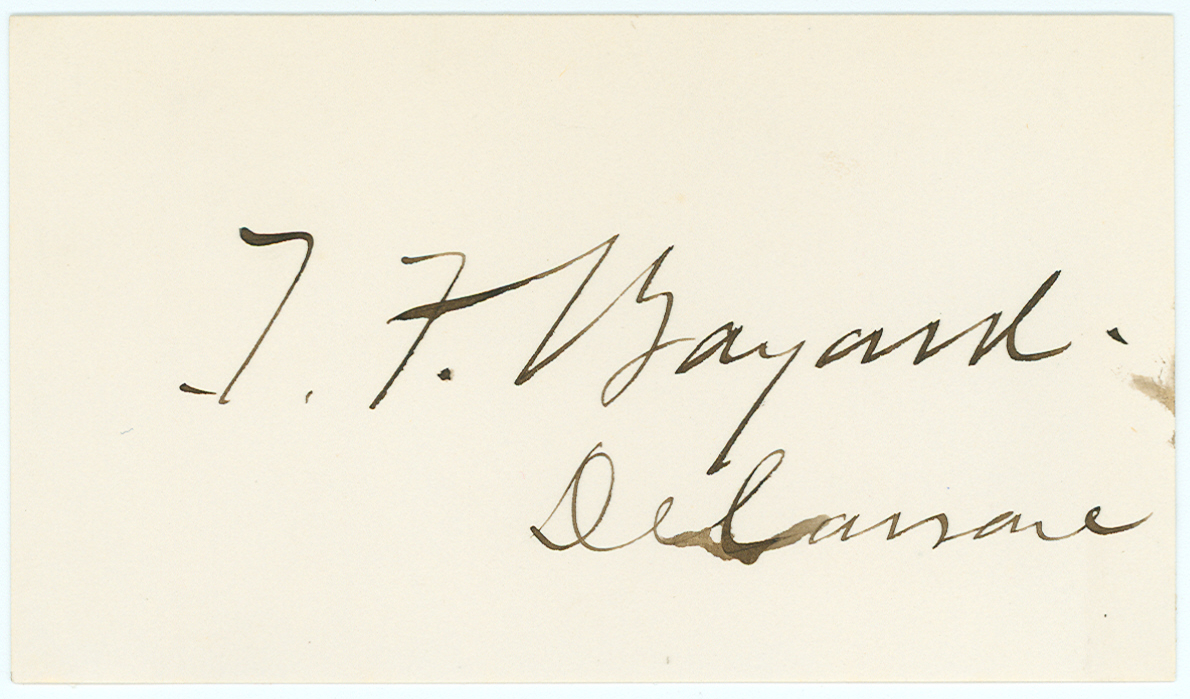 T. F. Bayard.
Delaware